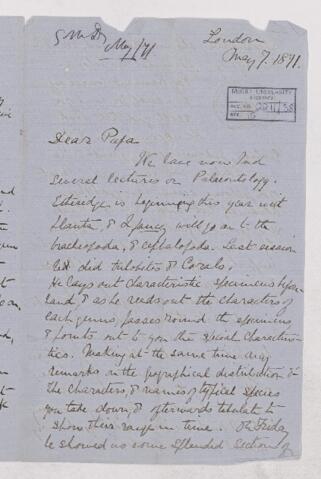 G.M.D.
May/71
London
May 7. 1871.
McGILL UNIVERSITY
ARCHIVES
ACC. NO.
REF.
Dear Papa
We have now had
several lectures on Palaeontology.
Etheridge is beginning this year with
Plants, & I fancy will go on to the
brachiopoda, & cephalopoda. Last session
he did trilobites & Corals.
He lays out characteristic specimens before
hand & as he reads out the characters of
each genus, passes round the specimens
& points out to you the special characteris-
tics. Making at the same time any
remarks on the geographical distribution &c
the characters, & names of typical species
you take down, & afterwards tabulate to
show their range in time. On Friday
he showed us some splendid sections of